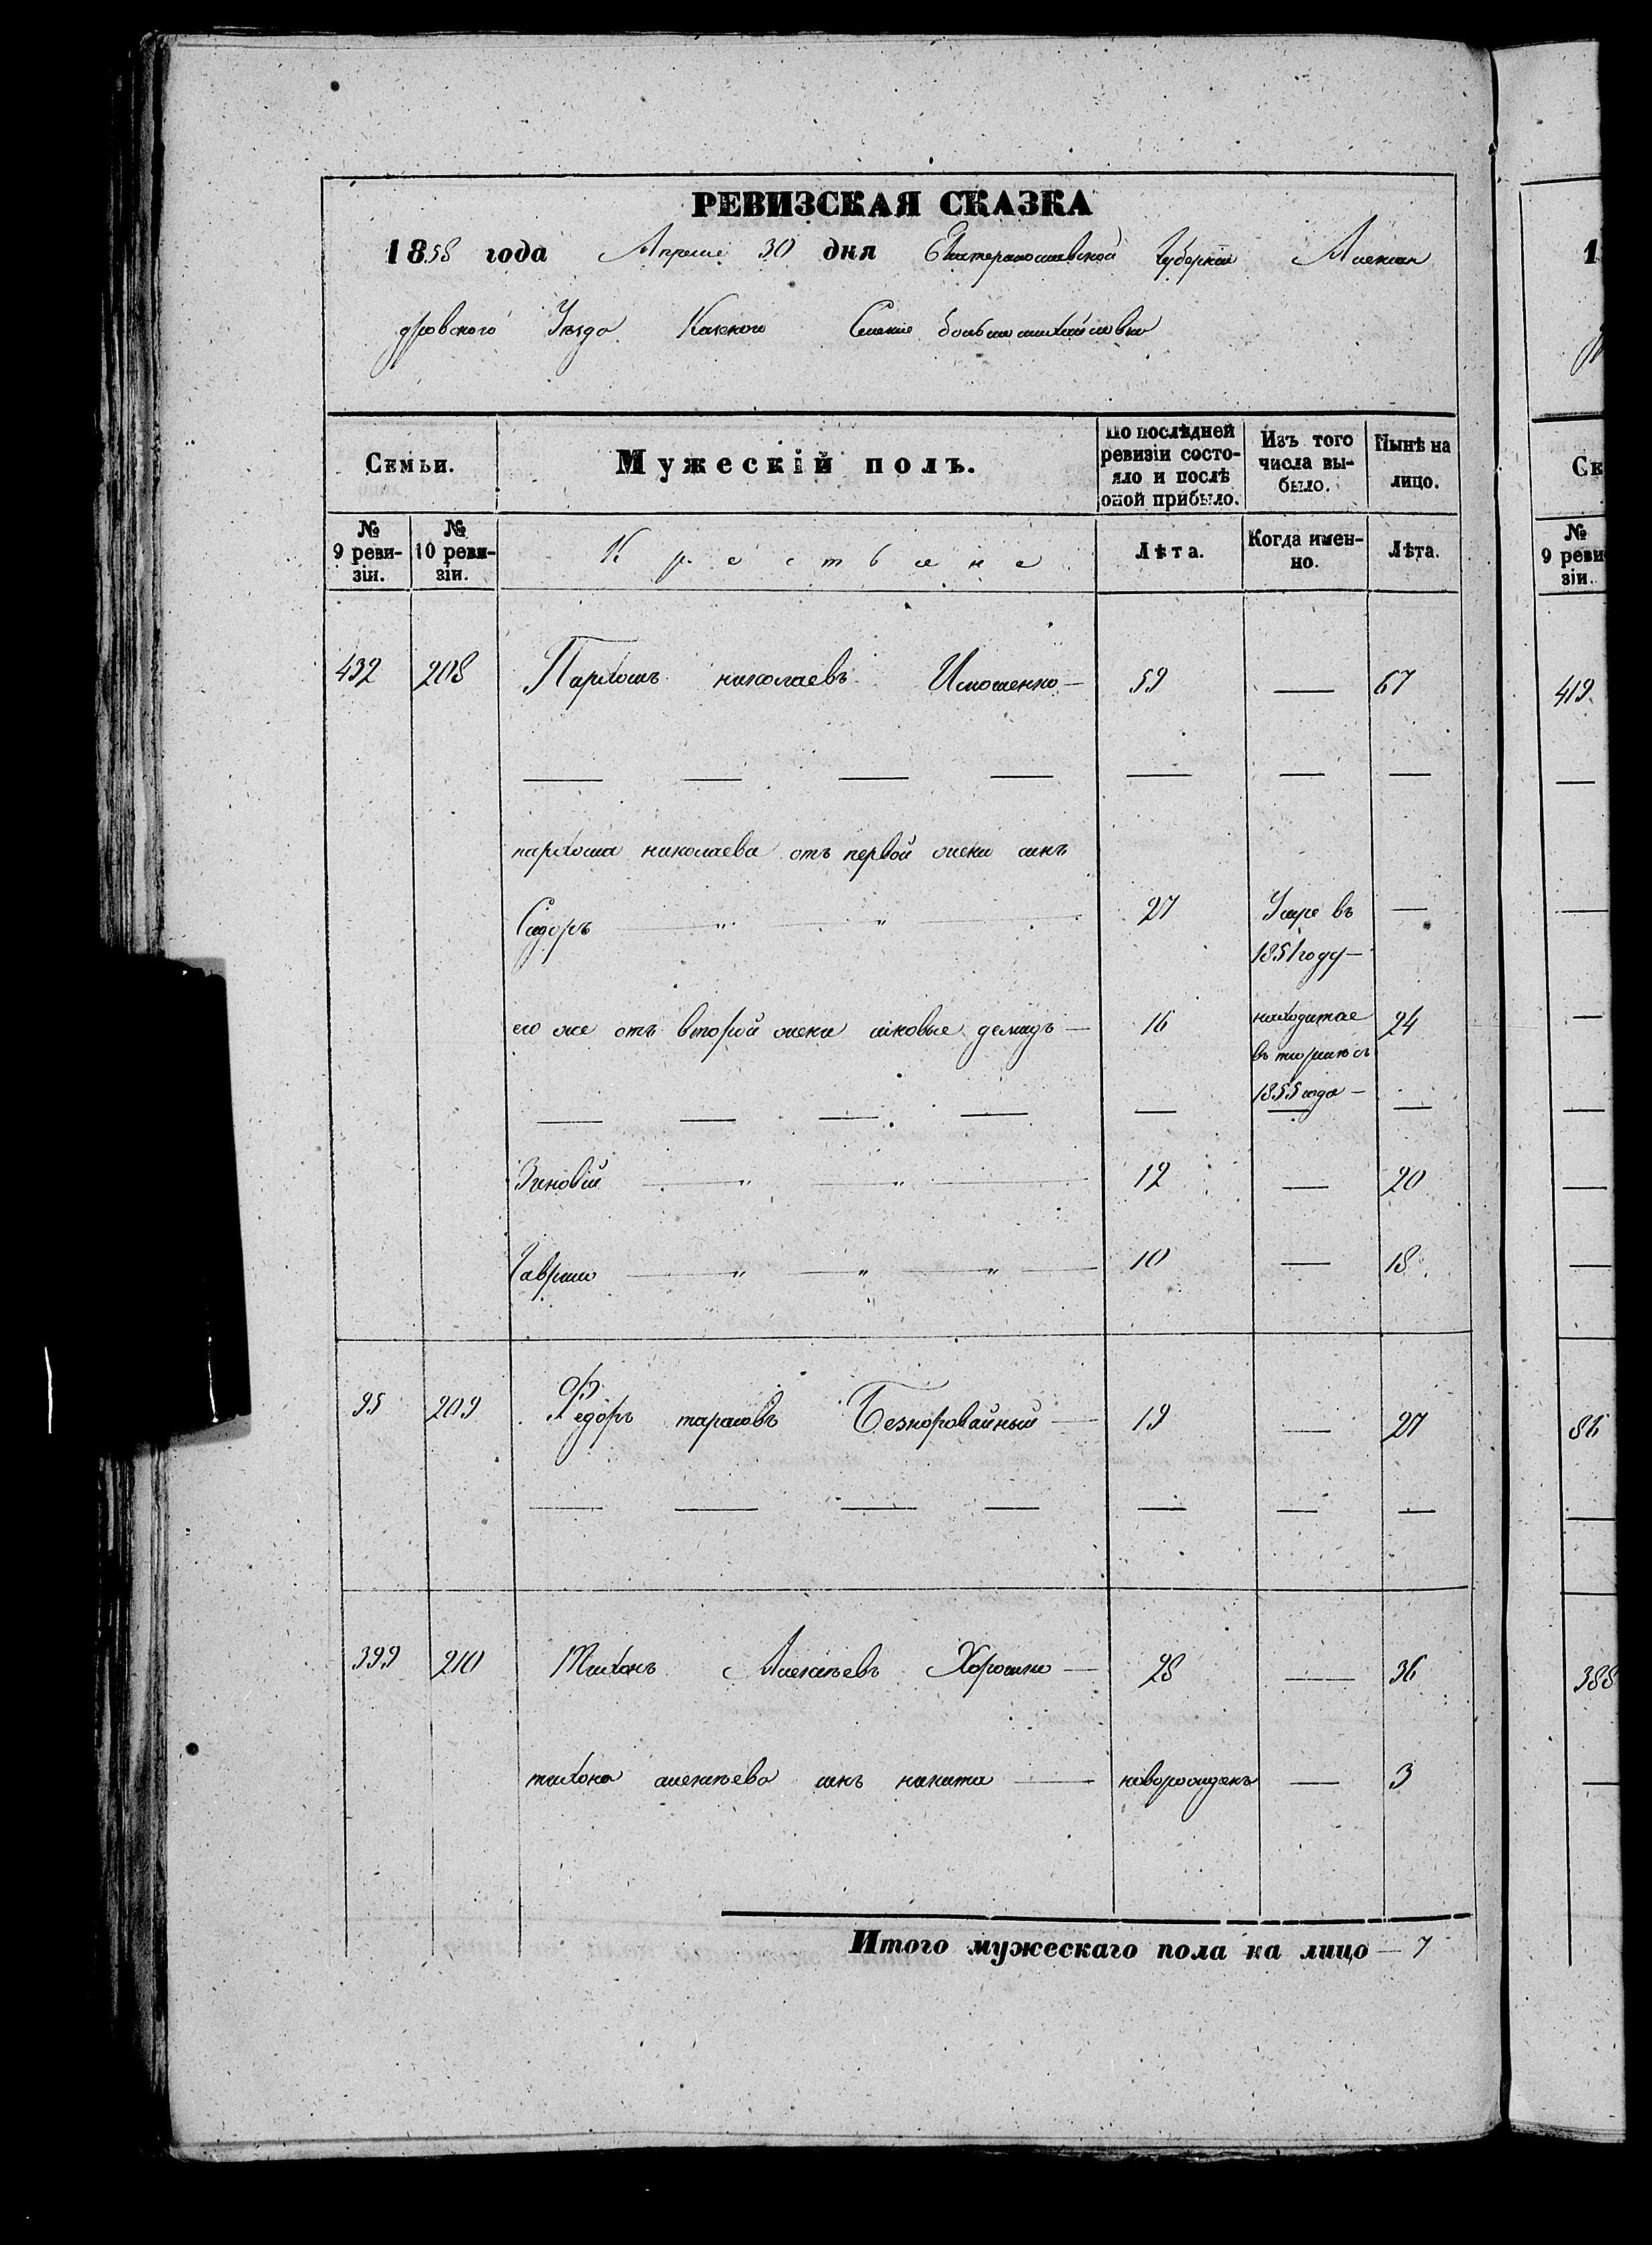 РЕВИЗСКАЯ СКАЗКА
1858 года Апреля 30 дня Екатеринославской Губернии Алексан
дровского Уезда Казеного Селение большомихайловки
Семьи.
Мужескій полъ.
По послѣдней ревизіи состо-
яло и послѣ
оной прибыло.
Изъ того
числа вы-
было.
Нынѣ на
лицо.
№
9 реви-
зіи.
№
10 реви-
зіи.
Крестьяне
Лѣта.
Когда имен-
но.
Лѣта.
432 208 Пархомъ николаевъ 59 — 67
пархома николаева отъ первой жени синъ
Сидоръ " " 27 Умре въ —
1851 году —
его же отъ второй жени синовье демидъ — 16 находитсе 24
въ тюрьмѣ съ
1855 года —
Зиновій " " 12 — 20
Гаврило " " " 10 — 18
95 209 Федоръ тарасовъ Безкоровайный — 19 — 27
399 210 Тихонъ Алексѣевъ Хорошко — 28 — 36
тихона алексѣева синъ никита — новорожденъ — 3
Итого мужескаго пола на лицо — 7
1
Ск
№
9 реви
зіи.
419
86
388